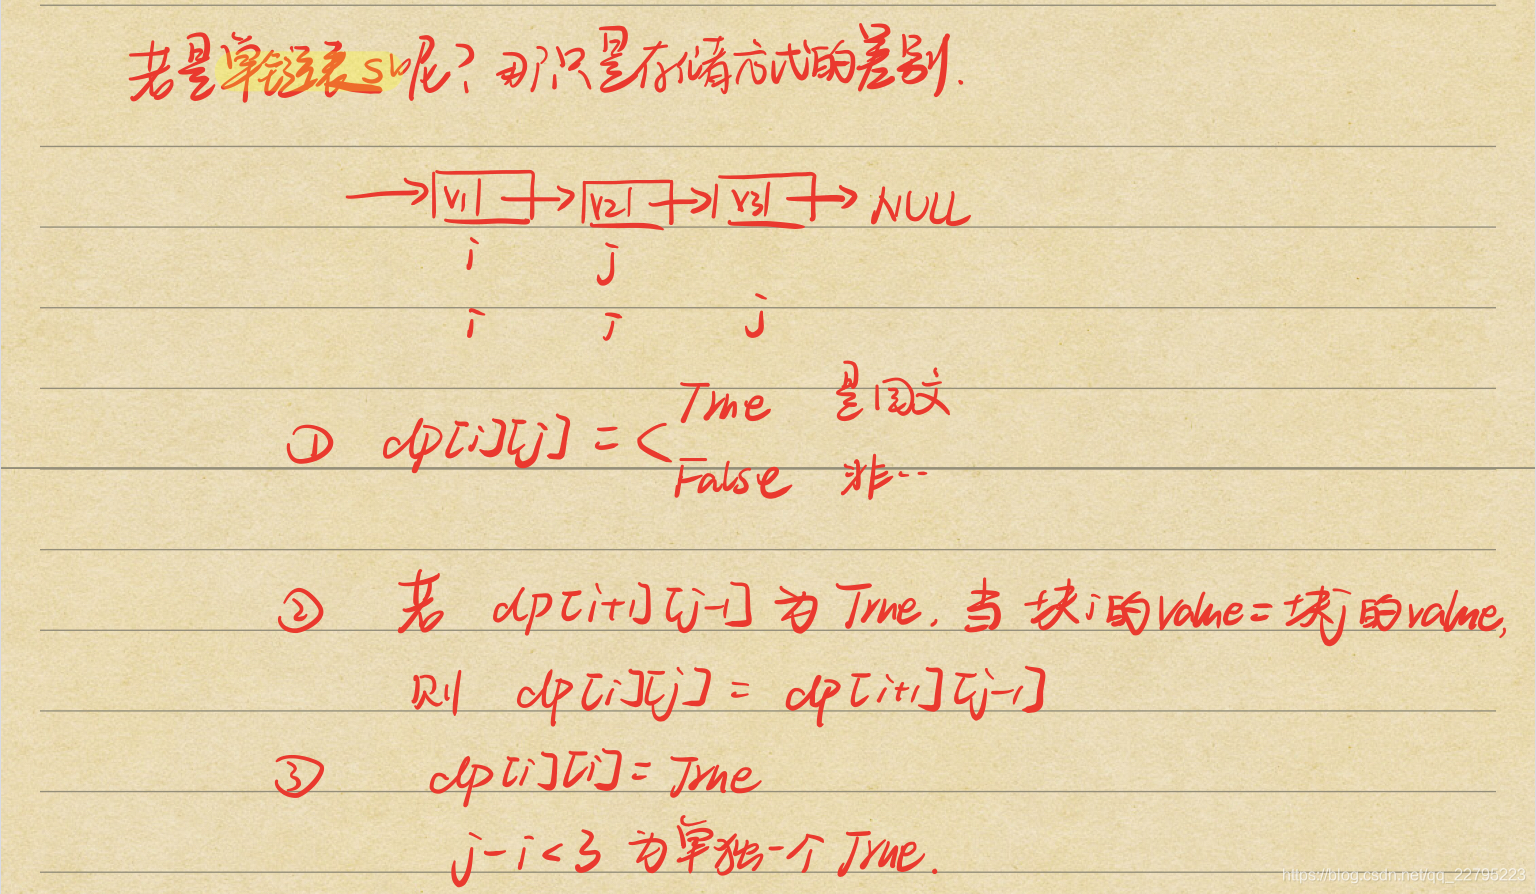 若是单链表SV呢?那只是存储方式的差别.
V1 V2 V3 NULL
i j
i j j
① dp[i][j] = True 是回文
False 非··
② 若 dp[i+1][j-1] 为 True. 当 块i的value=块j的value,
则 dp[i][j] = dp[i+1][j-1]
③ dp[i][i]=True
j-i<3 为单独一个True.
https://blog.csdn.net/qq_22795223